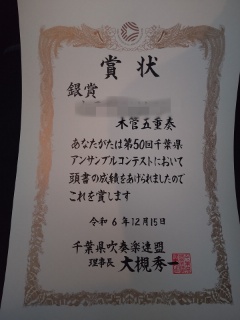 賞状
銀賞
木管五重奏
あなたがたは第50回千葉県
アンサンブルコンテストにおいて
頭書の成績をあげられましたので
これを賞します
令和6年12月15日
千葉県吹奏楽連盟
理事長 大槻秀一